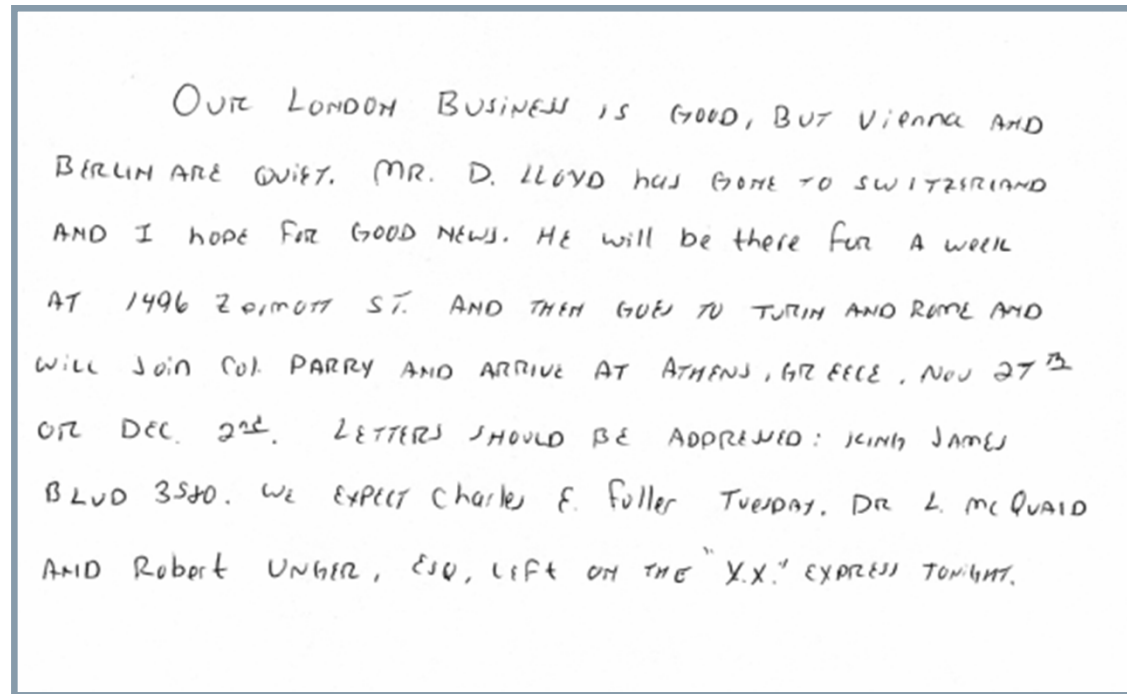 OUR LONDON BUSINESS IS GOOD, BUT Vienna AND
BERLIN ARE QUIET. MR. D. LLOYD has GONE TO SWITZERLAND
AND I hope FOR GOOD NEWS. HE will be there for A week
AT 1496 Zermott ST. AND THEN GOES TO TURIN AND ROME AND
WILL Join Col. PARRY AND ARRIVE AT ATHENS, GREECE, NOV 27th
OR DEC. 2nd. LETTERS SHOULD BE ADDRESSED: KING JAMES
BLVD 3580. WE EXPECT Charles E. Fuller TUESDAY. DR L. MCQUAID
AND Robert UNGER, ESQ, LEFT ON THE "X.X." EXPRESS TONIGHT.